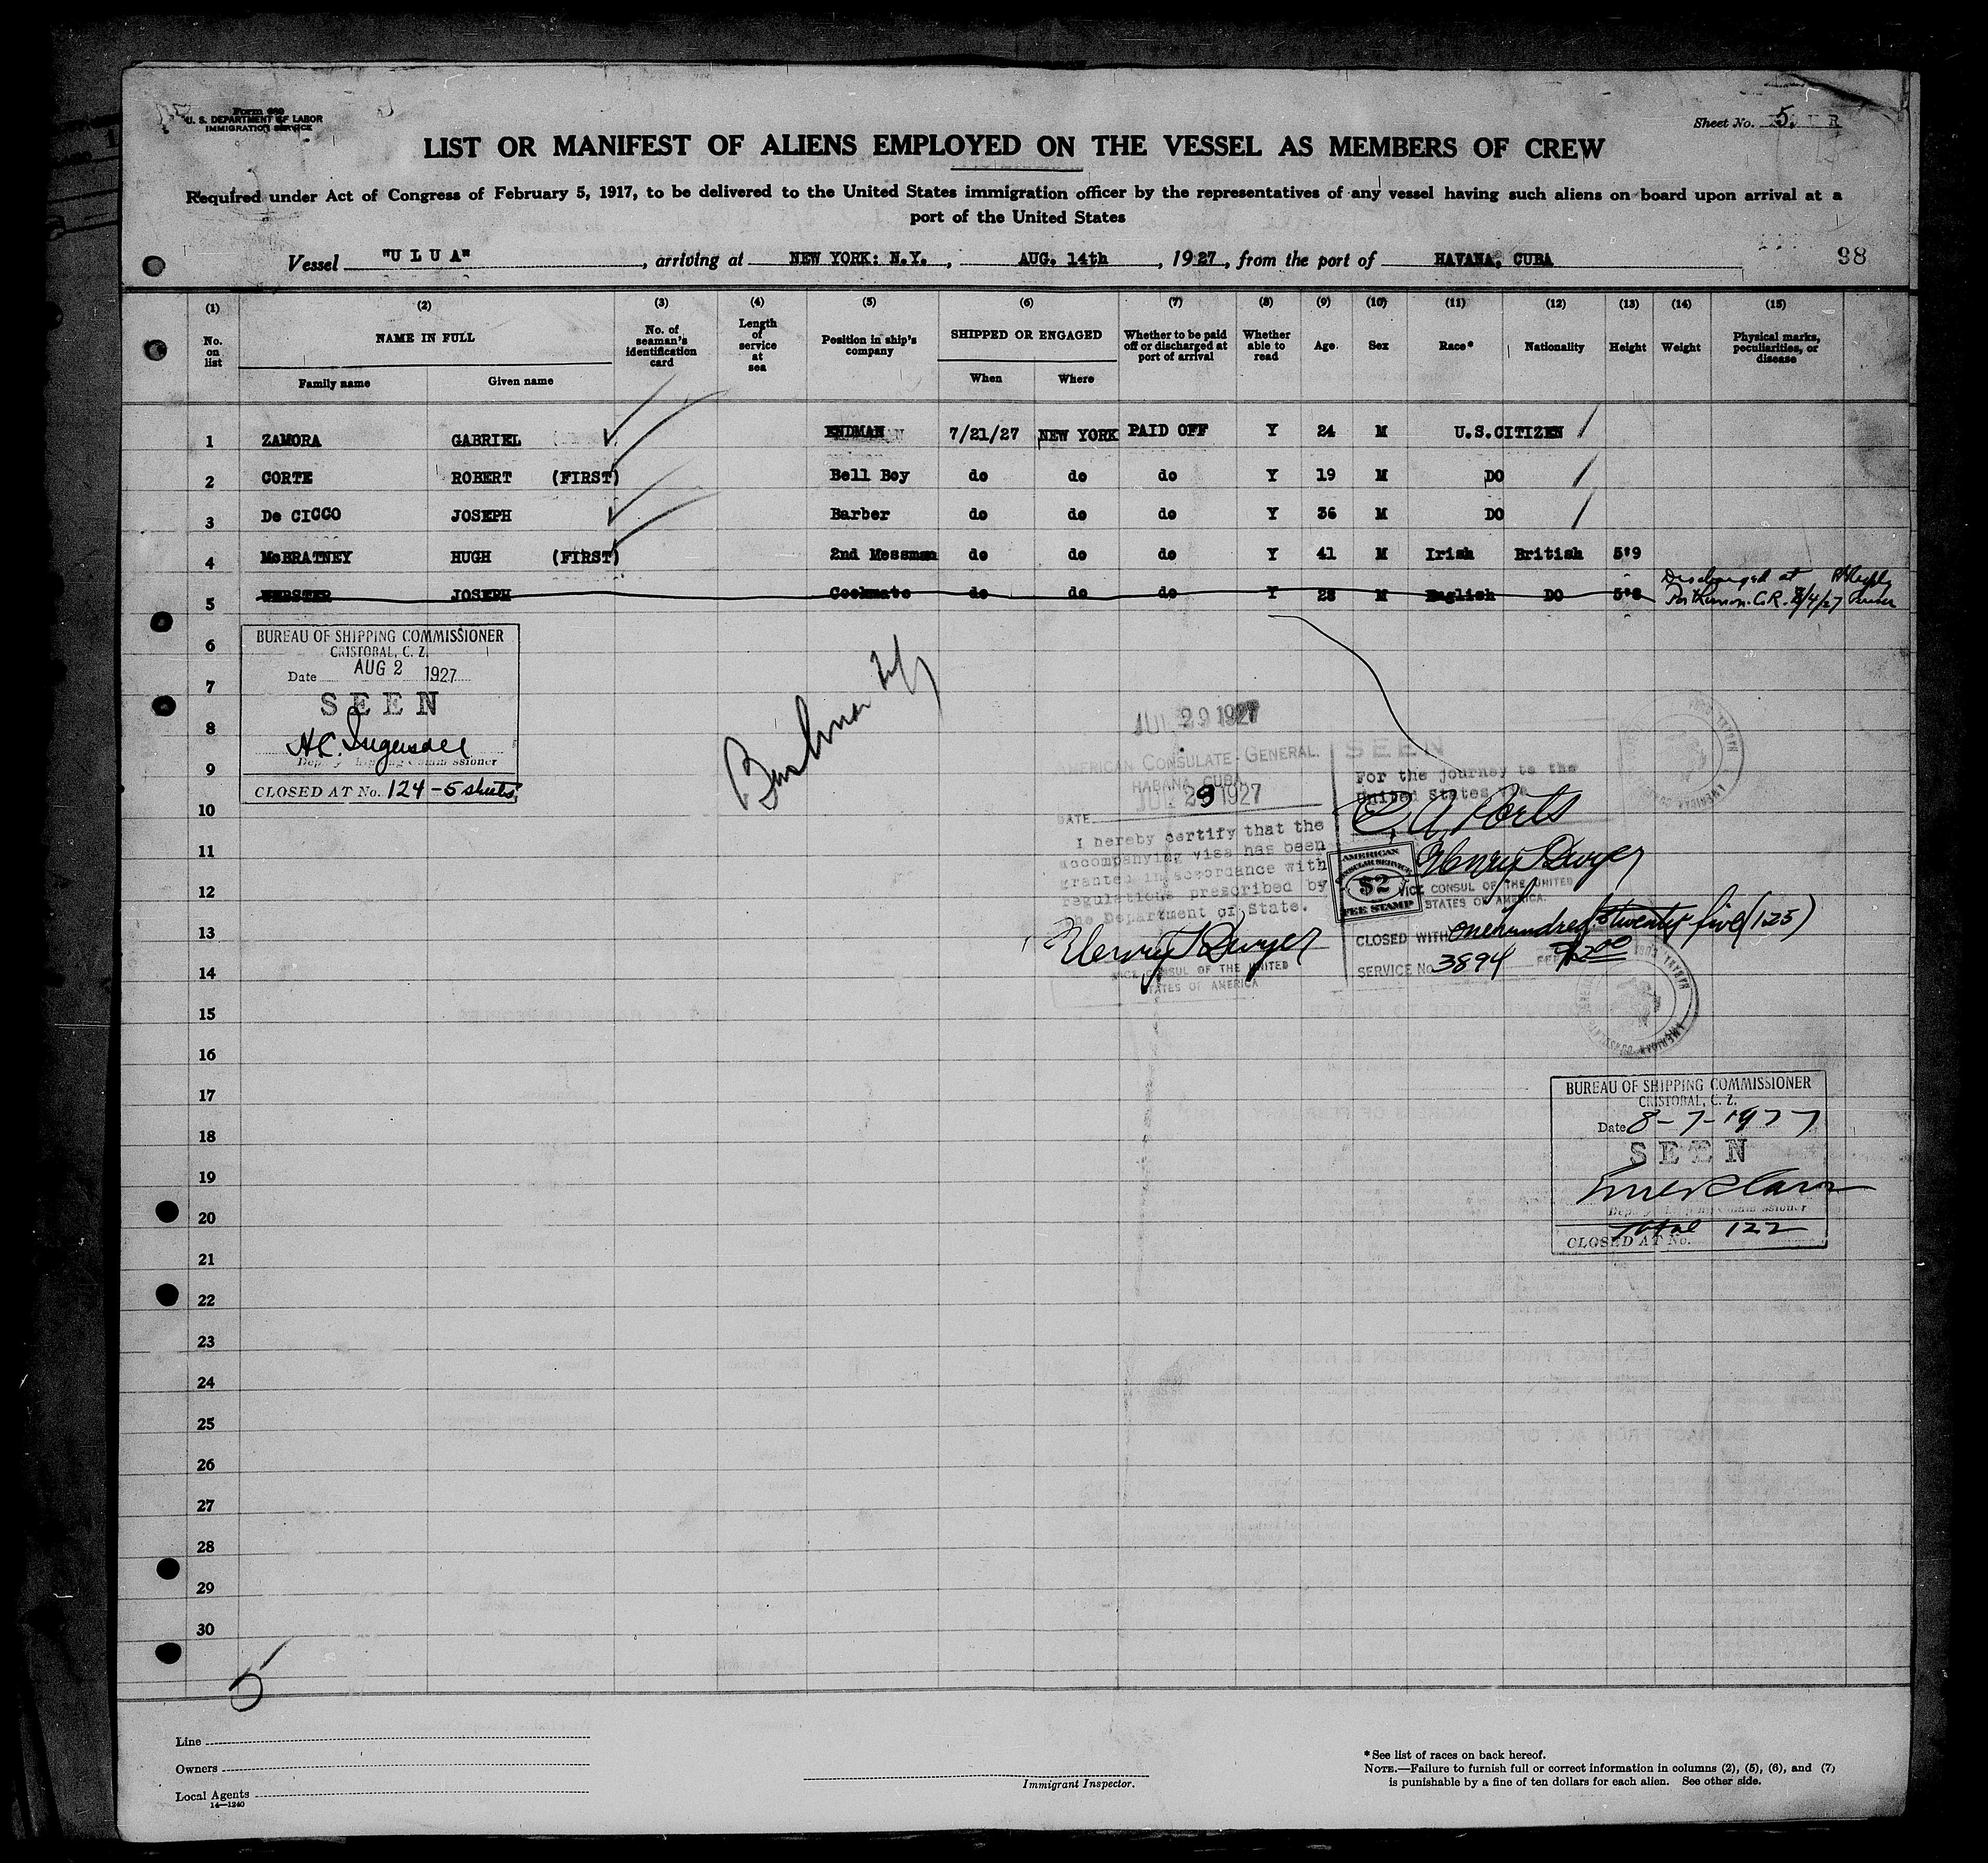 Form 680
U. S. DEPARTMENT OF LABOR
IMMIGRATION SERVICE
Sheet No. 5.
LIST OR MANIFEST OF ALIENS EMPLOYED ON THE VESSEL AS MEMBERS OF CREW
Required under Act of Congress of February 5, 1917, to be delivered to the United States immigration officer by the representatives of any vessel having such aliens on board upon arrival at a
port of the United States
Vessel "U L U A", arriving at NEW YORK: N.Y., AUG. 14th, 1927, from the port of HAVANA, CUBA
98
(1) (2) (3) (4) (5) (6) (7) (8) (9) (10) (11) (12) (13) (14) (15)
No. on list NAME IN FULL No. of seaman's identification card Length of service at sea Position in ship's company SHIPPED OR ENGAGED Whether to be paid off or discharged at port of arrival Whether able to read Age. Sex Race* Nationality Height Weight Physical marks, peculiarities, or disease
Family name Given name When Where
1 ZAMORA GABRIEL ENDMAN 7/21/27 NEW YORK PAID OFF Y 24 M U.S.CITIZEN
2 CORTE ROBERT (FIRST) Bell Boy do do do Y 19 M DO
3 De CICCO JOSEPH Barber do do do Y 36 M DO
4 McBRATNEY HUGH (FIRST) 2nd Messman do do do Y 41 M Irish British 5'9
5 WEBSTER JOSEPH Cookmate do do do Y 28 M English DO 5'8 Discharged at
C.R. 8/4/27 Purser
6
7
8
9
10
11
12
13
14
15
16
17
18
19
20
21
22
23
24
25
26
27
28
29
30
BUREAU OF SHIPPING COMMISSIONER
CRISTOBAL, C. Z.
Date AUG 2 1927
SEEN
Deputy Shipping Commissioner
CLOSED AT No. 124-5 sheets
JUL 29 1927
AMERICAN CONSULATE-GENERAL.
HABANA, CUBA
JUL 29 1927
DATE
I hereby certify that the
accompanying visa has been
granted in accordance with
regulations prescribed by
the Department of State.
VICE CONSUL OF THE UNITED
STATES OF AMERICA
SEEN
For the journey to the
United States via
C. A. Ports
AMERICAN
CONSULAR SERVICE
$2
FEE STAMP
VICE CONSUL OF THE UNITED
STATES OF AMERICA.
CLOSED WITH one hundred & twenty five (125)
SERVICE No. 3894 FEE $2.00
BUREAU OF SHIPPING COMMISSIONER
CRISTOBAL, C. Z.
Date 8-7-1927
SEEN
Deputy Shipping Commissioner
Total 122
CLOSED AT No.
5
Line
Owners
Local Agents
14—1240
Immigrant Inspector.
*See list of races on back hereof.
NOTE.—Failure to furnish full or correct information in columns (2), (5), (6), and (7)
is punishable by a fine of ten dollars for each alien. See other side.